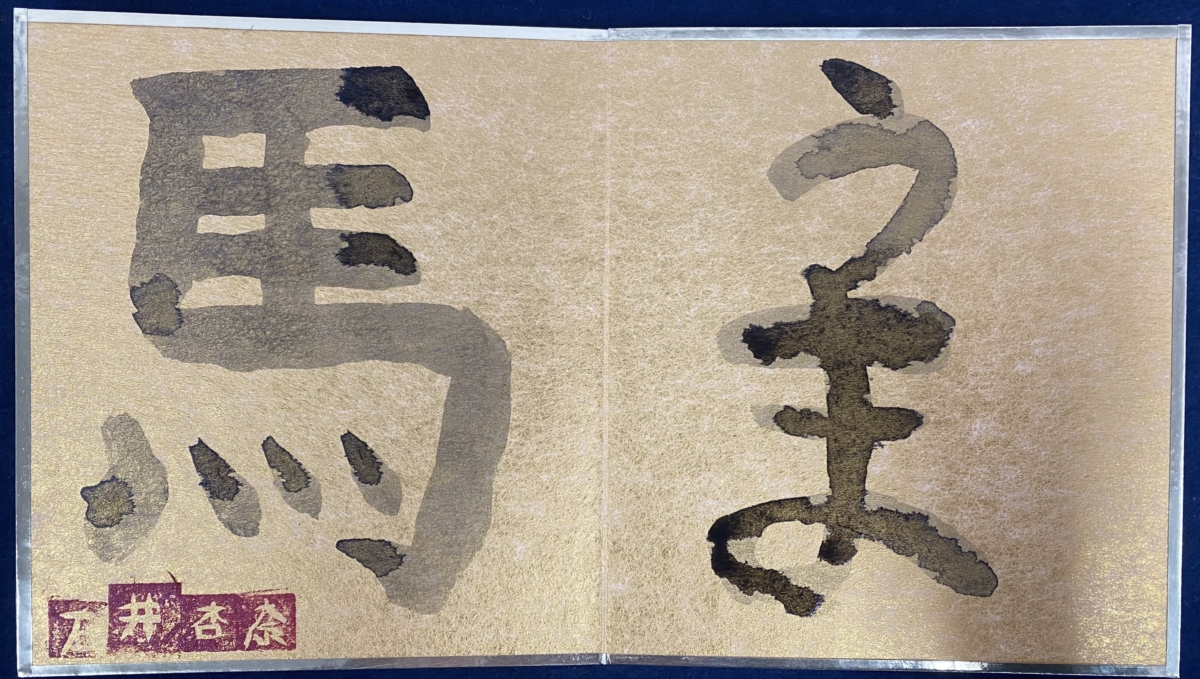 うま
馬
石井杏奈